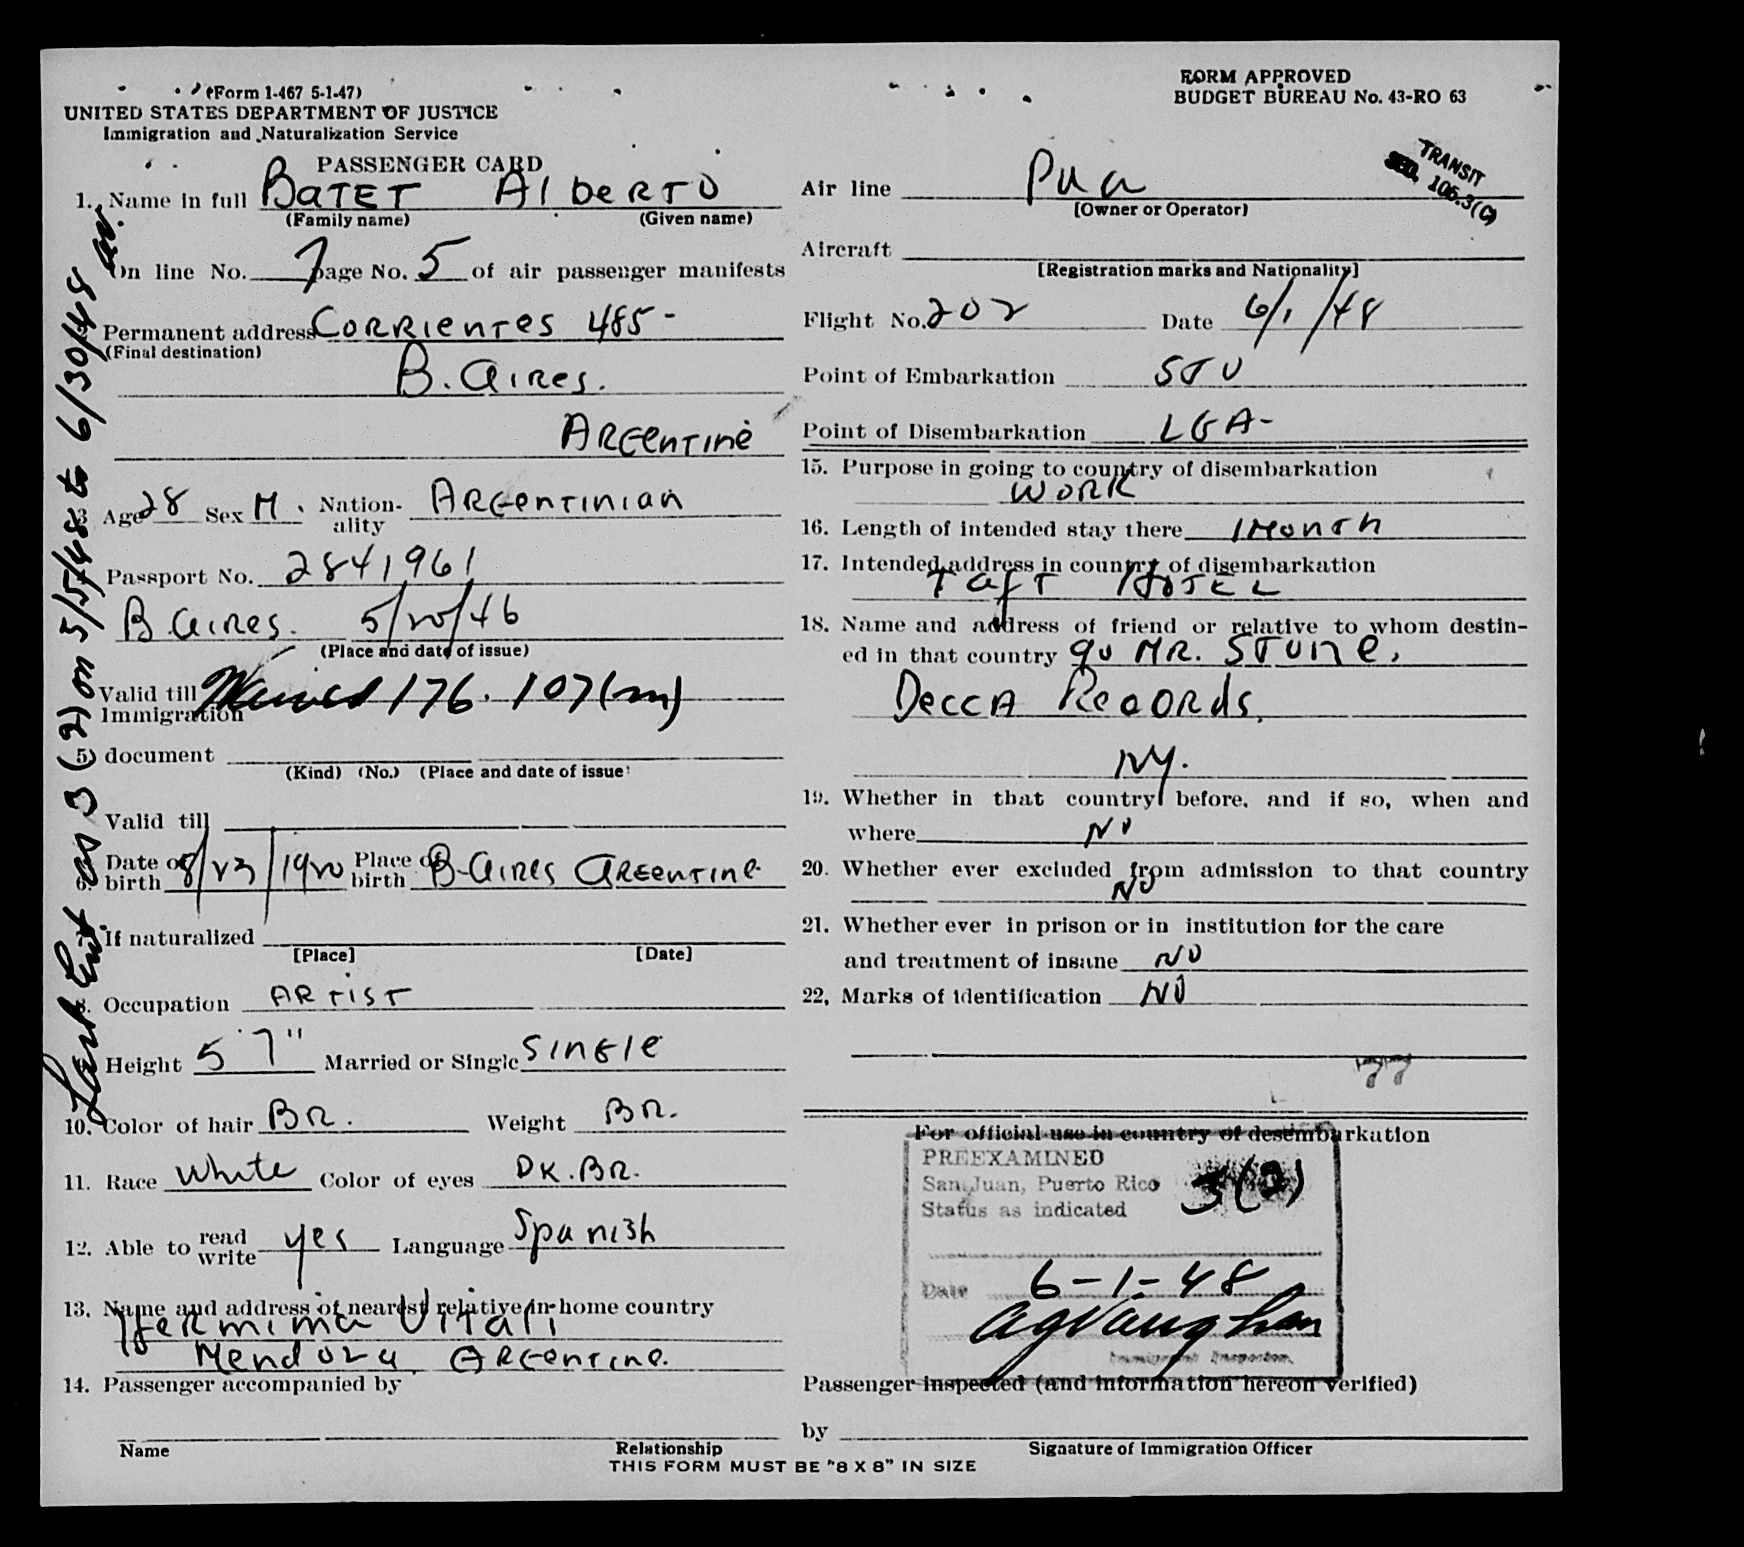 (Form 1-467 5-1-47)
UNITED STATES DEPARTMENT OF JUSTICE
Immigration and Naturalization Service
PASSENGER CARD
1. Name in full BATET AlbeRTO
(Family name) (Given name)
On line No. 7 page No. 5 of air passenger manifests
Permanent address CORRIenTes 485-
(Final destination)
B. Aires.
ARGenTine
3 Age 28 Sex M. Nation-
ality ARGenTinian
Passport No. 2841961
B. Aires. 5/20/46
(Place and date of issue)
Valid till Waived 176.107(m)
Immigration
5) document
(Kind) (No.) (Place and date of issue)
Valid till
6. Date of birth 8/23/1920 Place of birth B-Aires ARGenTine
If naturalized
[Place] [Date]
8. Occupation ARTIST
Height 5'7" Married or Single SinGle
10. Color of hair BR. Weight BR.
11. Race White Color of eyes DK.BR.
12. Able to read
write yes Language Spanish
13. Name and address of nearest relative in home country
HeRmima Vitali
Mendoza ARGenTine.
14. Passenger accompanied by
Name Relationship
THIS FORM MUST BE "8 X 8" IN SIZE
as 3(2) on 5/5/48 to 6/30/48
FORM APPROVED
BUDGET BUREAU No. 43-RO 63
TRANSIT
SEC. 105.3(C)
Air line Paa
[Owner or Operator]
Aircraft
[Registration marks and Nationality]
Flight No. 202 Date 6/1/48
Point of Embarkation SJU
Point of Disembarkation LGA-
15. Purpose in going to country of disembarkation
WORK
16. Length of intended stay there 1 MonTh
17. Intended address in country of disembarkation
TafT HoTEL
18. Name and address of friend or relative to whom destin-
ed in that country MR. STone,
Decca Records,
NY.
19. Whether in that country before, and if so, when and
where No
20. Whether ever excluded from admission to that country
No
21. Whether ever in prison or in institution for the care
and treatment of insane No
22, Marks of identification No
For official use in country of desembarkation
PREEXAMINED
San Juan, Puerto Rico 3(2)
Status as indicated
Date 6-1-48
AgVaughan
Immigrant Inspector.
Passenger inspected (and information hereon verified)
by
Signature of Immigration Officer